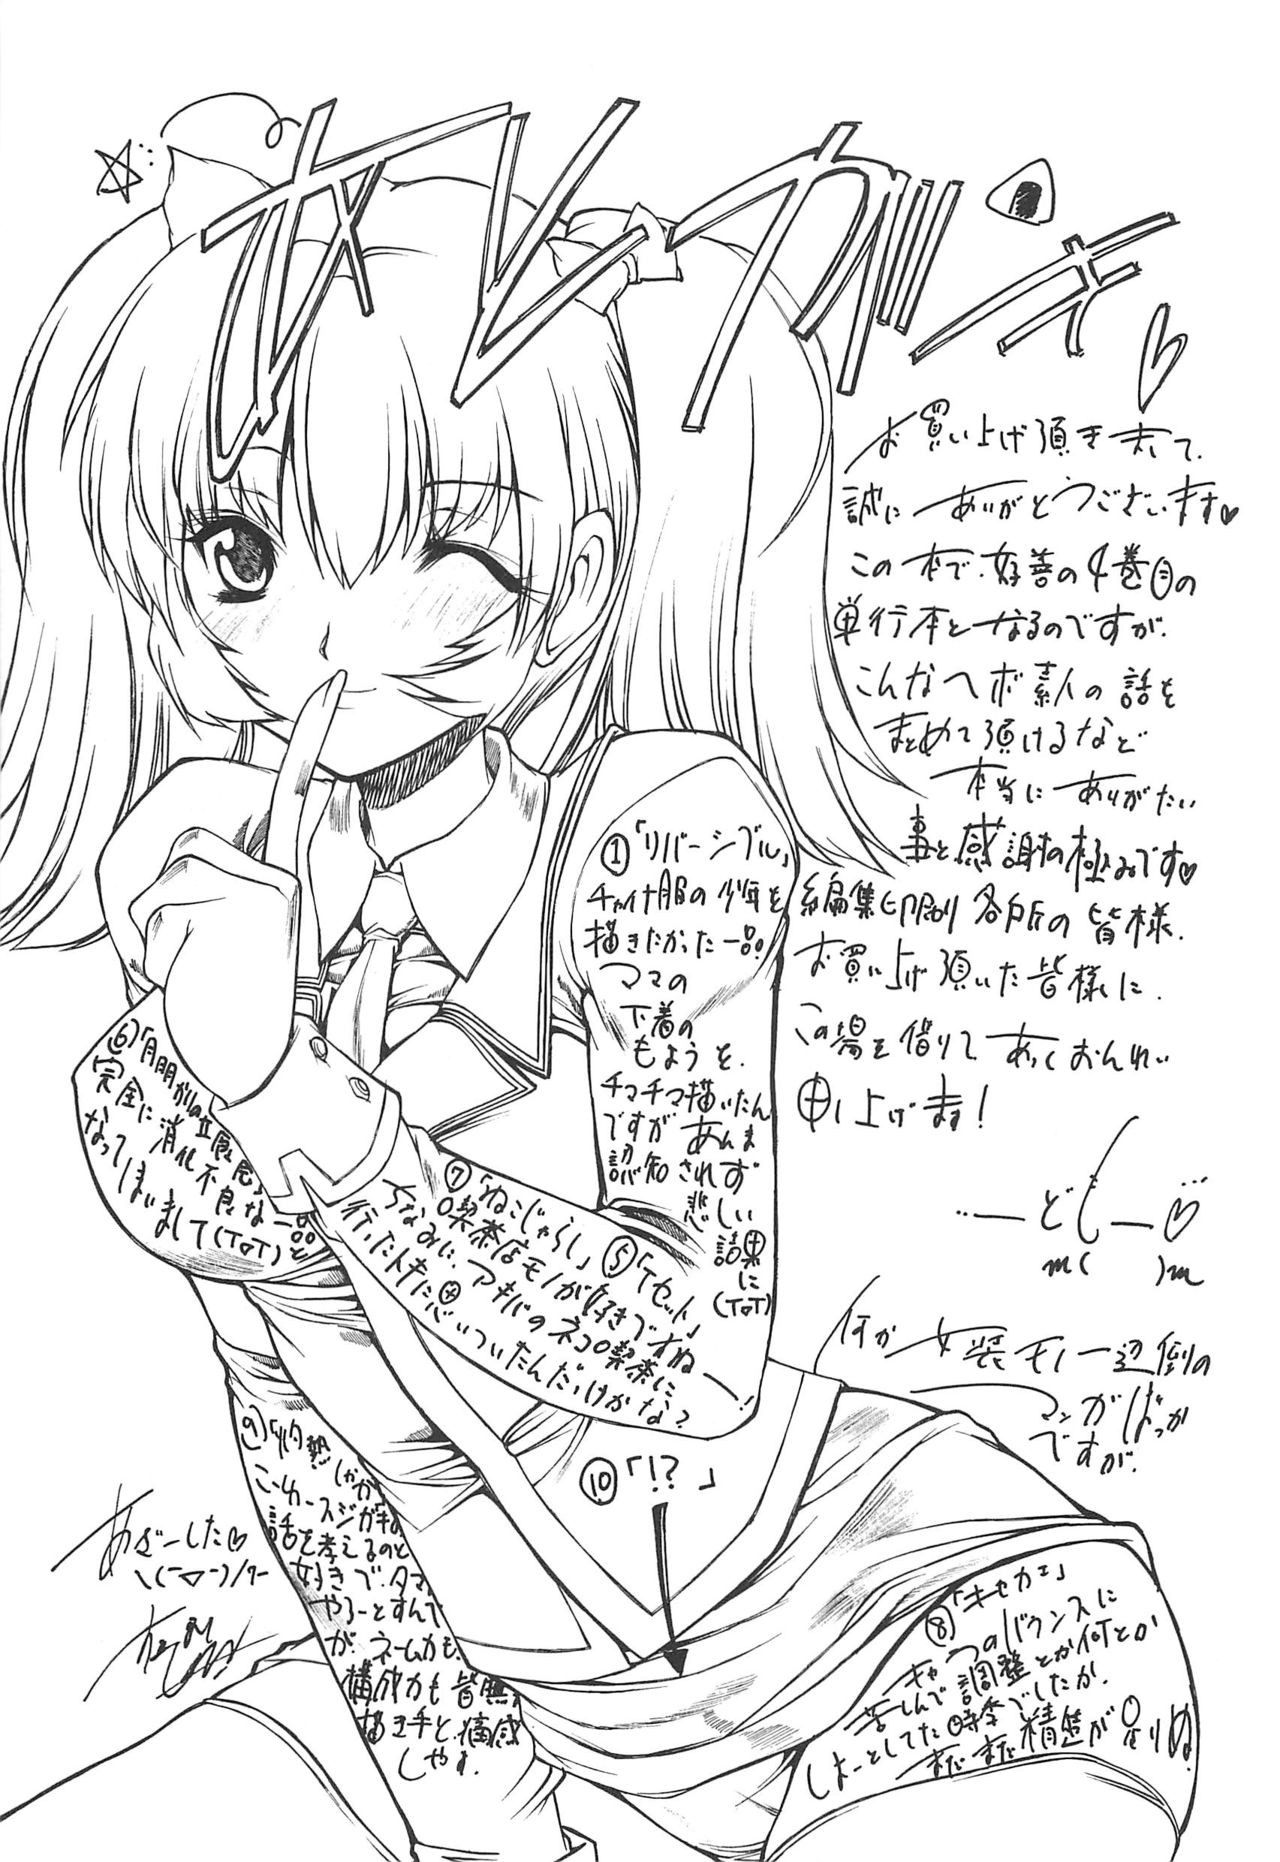 お買い上げ頂きまして、
誠にありがとうございます♥
この本で、好善の4巻目の
単行本となるのですが、
こんなヘボ素人の話を
まとめて頂けるなど
本当にありがたい
事と感謝の極みです♥
編集印刷各方所の皆様、
お買い上げ頂いた皆様に、
この場を借りてあつくおんれい
申し上げます!
…ーどもー♡
m( )m
何か女装モノ一辺倒の
マンガばっか
ですが、
①「リバーシブル」
チャイナ服の少年を
描きたかった一品!
ママの
下着の
もようを、
チマチマ描いたん
ですがあんま
認知されず
悲しい
結果に
(T□T)
⑤「Tセット」
⑥「月明かりの
完全に消化不良な一品と
なってしまいまして(T□T)
⑦「ねこじゃらし」
喫茶店モノが好きですねー!
ちなみに、アキバのネコ喫茶に
行ったトキに思いついたんだっけかな?
⑧「キセカエ」
キャラのバウンスに
苦しんで調整とか何とか
しよーとしてた時季でしたか、
まだまだ精進が足りぬ
⑨「灼熱
こーゆースジが
話を考えるのと
好きで、タマ
やろーとすんで
が、ネームカも、
構成力も皆無
描き手と、痛感
しやす。
⑩「!?」
あざーした♡
\(￣□￣)/ｱｰ